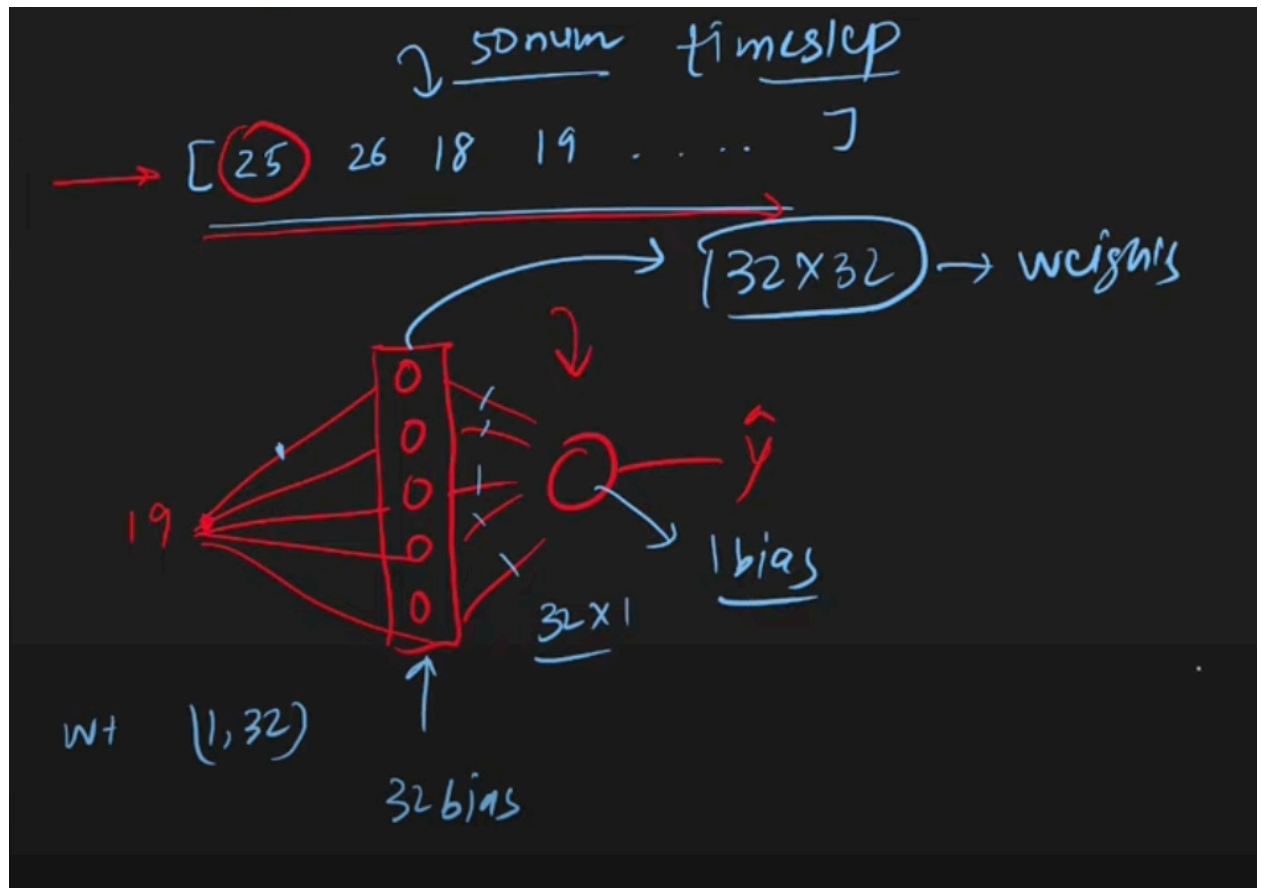 50 num timestep
[ 25 26 18 19 . . . . . ]
32X32 → weights
ŷ
19
1 bias
32X1
wt (1,32)
32 bias